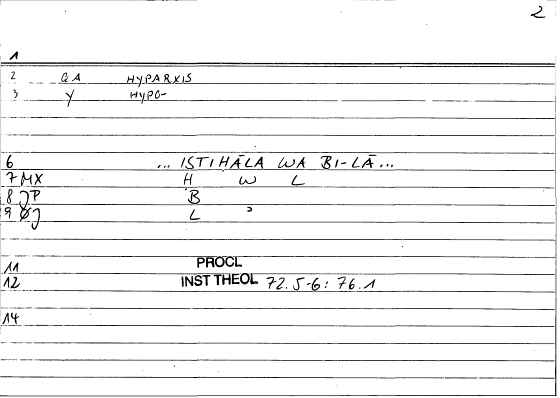 2
1
2 QA HYPARXIS
3 Y HYPO-
6 ... ISTIHĀLA WA BI-LĀ...
7 MX H W L
8 JP B
9 ØJ L ʾ
11 PROCL
12 INST THEOL 72.5-6: 76.1
14